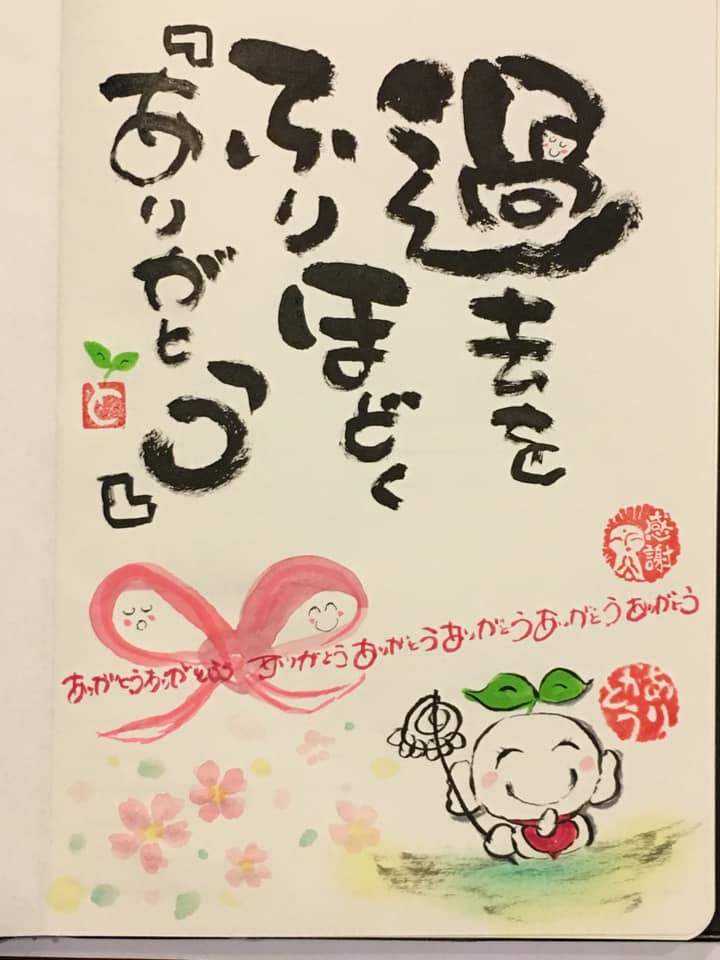 過去を
ふりほどく
『ありがとう』
感謝
ありがとうありがとう ありがとうありがとうありがとうありがとうありがとう
ありがとう